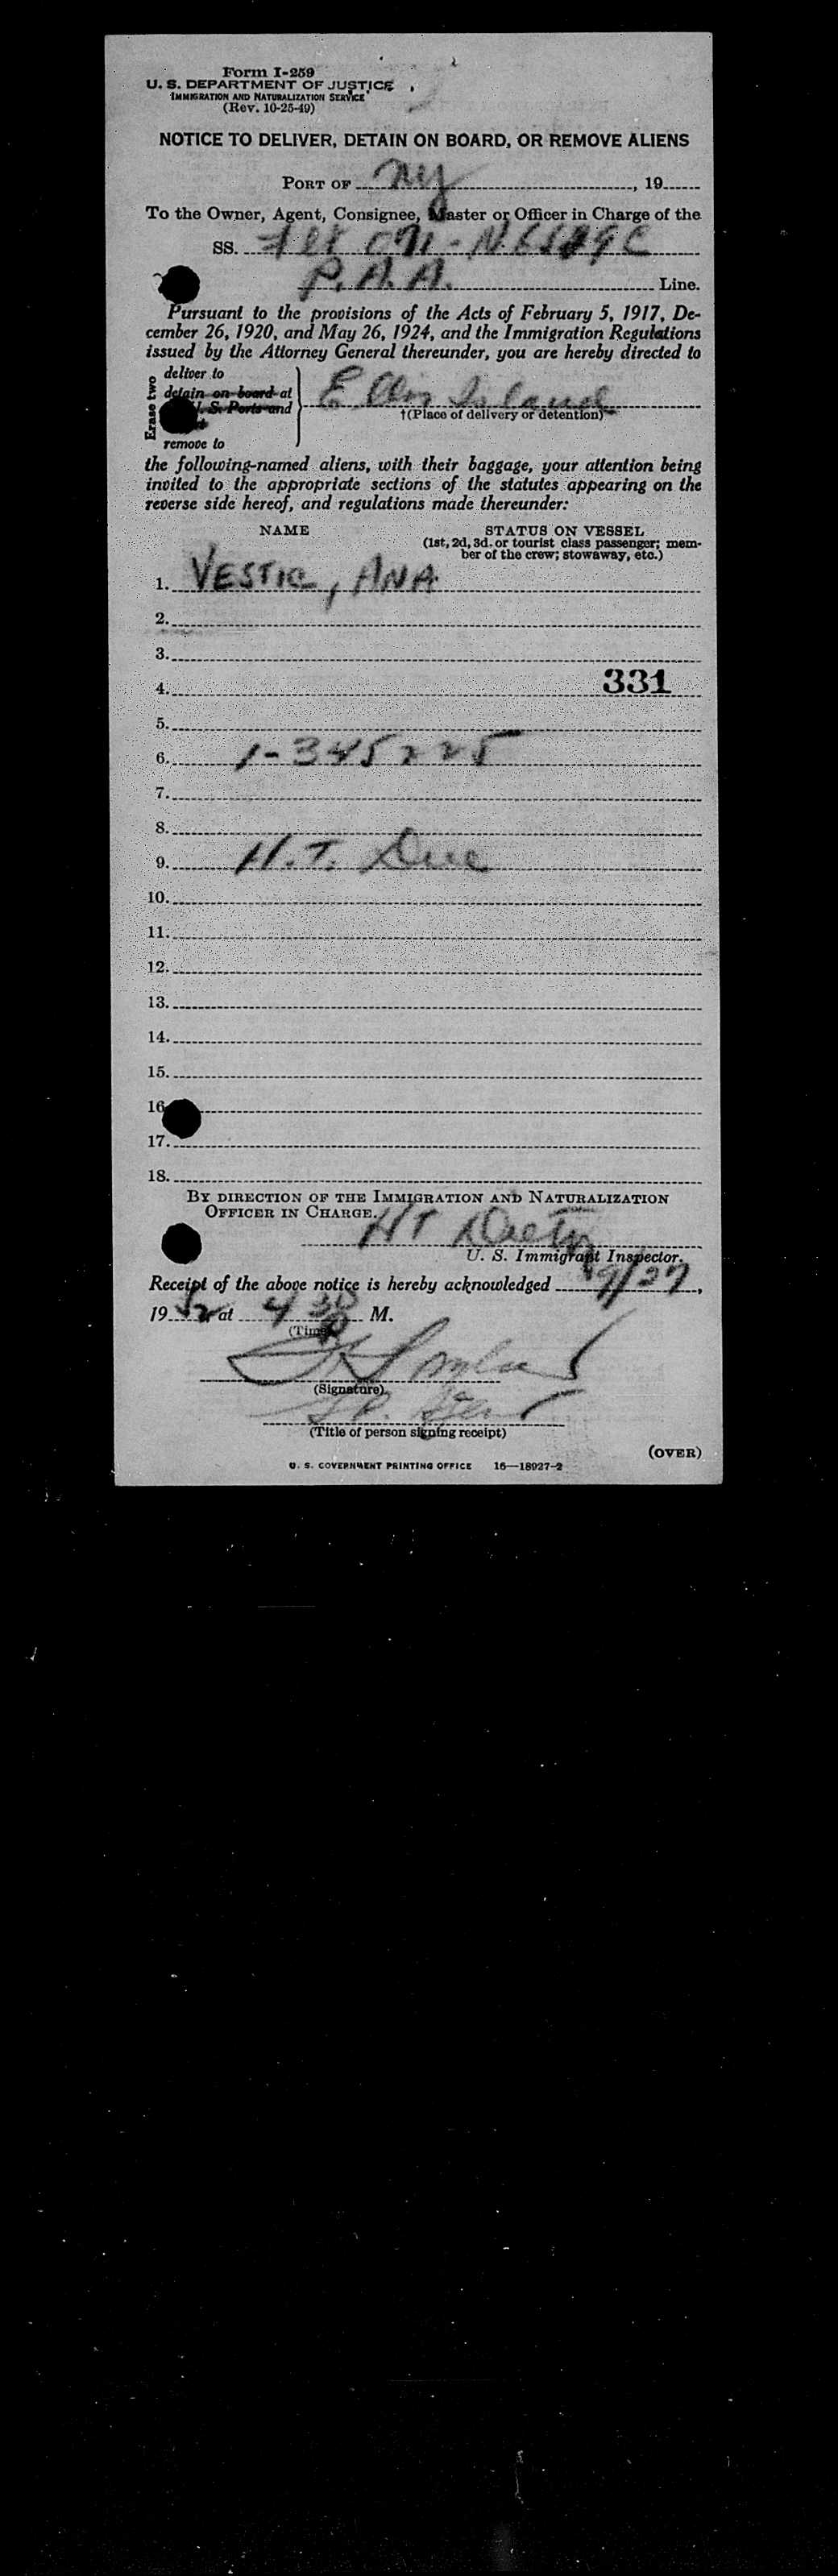 Form I-259
U. S. DEPARTMENT OF JUSTICE
IMMIGRATION AND NATURALIZATION SERVICE
(Rev. 10-25-49)
NOTICE TO DELIVER, DETAIN ON BOARD, OR REMOVE ALIENS
PORT OF NY, 19
To the Owner, Agent, Consignee, Master or Officer in Charge of the
SS.
P.A.A. Line.
Pursuant to the provisions of the Acts of February 5, 1917, De-
cember 26, 1920, and May 26, 1924, and the Immigration Regulations
issued by the Attorney General thereunder, you are hereby directed to
Erase two
deliver to
detain on board at
U. S. Ports and
remove to
Ellis Island
†(Place of delivery or detention)
the following-named aliens, with their baggage, your attention being
invited to the appropriate sections of the statutes appearing on the
reverse side hereof, and regulations made thereunder:
NAME STATUS ON VESSEL
(1st, 2d, 3d. or tourist class passenger; mem-
ber of the crew; stowaway, etc.)
1. VESTIC, ANA
2.
3.
4. 331
5.
6. 1-345225
7.
8.
9. H.T.
10.
11.
12.
13.
14.
15.
16.
17.
18.
BY DIRECTION OF THE IMMIGRATION AND NATURALIZATION
OFFICER IN CHARGE.
HT
U. S. Immigrant Inspector.
Receipt of the above notice is hereby acknowledged 9/27,
1952 at 4 30 M.
(Time)
(Signature)
(Title of person signing receipt)
(OVER)
U. S. GOVERNMENT PRINTING OFFICE 16—18927-2